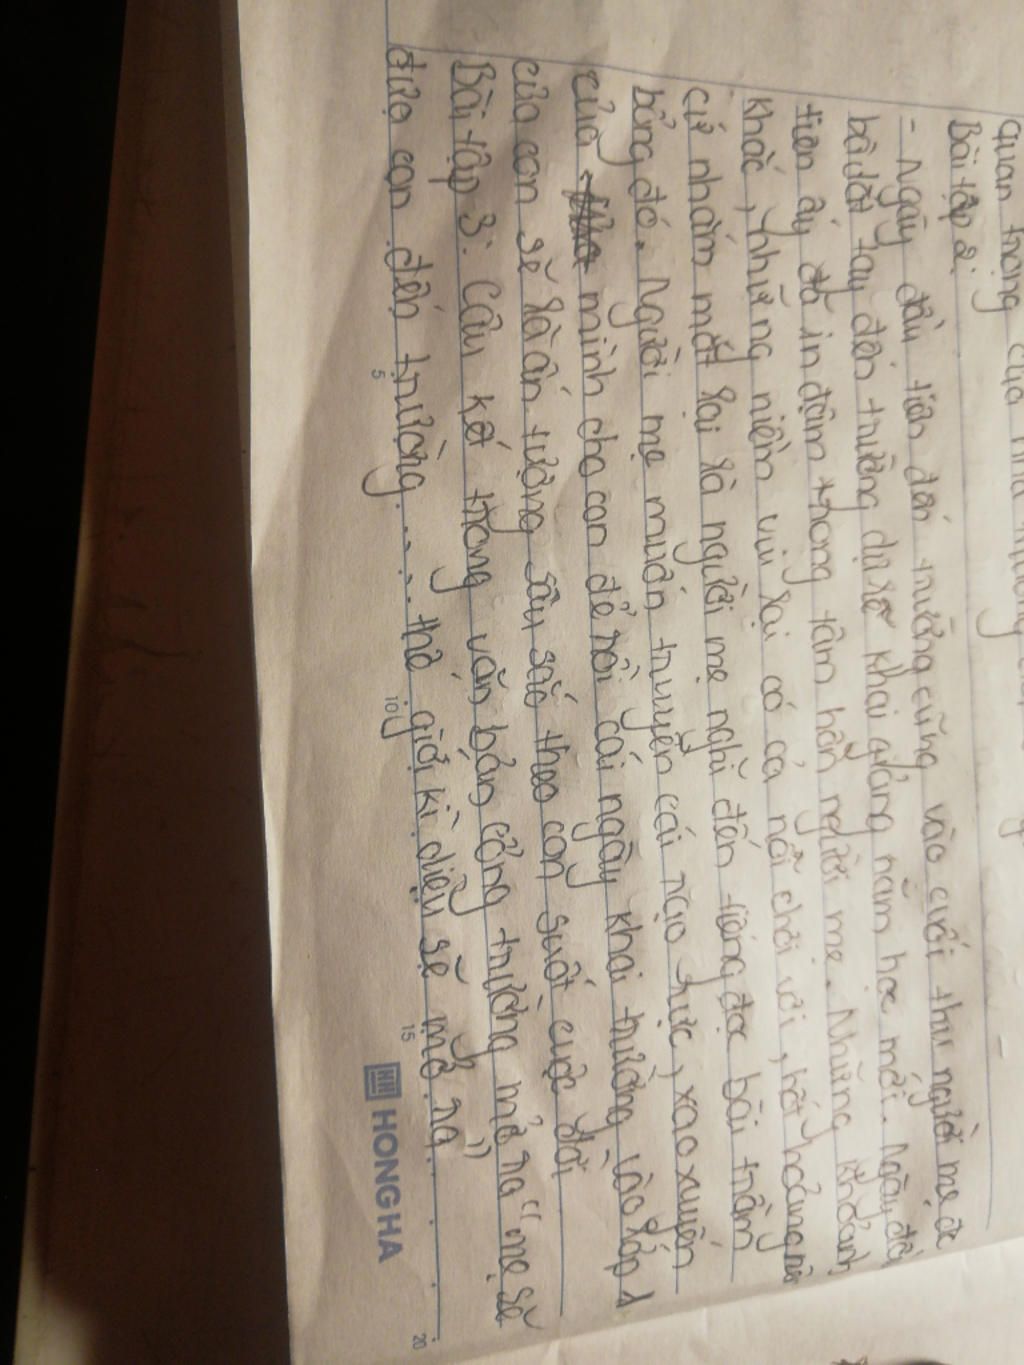 quan trọng của nhà trường
Bài tập 2:
- Ngày đầu tiên đến trường cũng vào cuối thu người mẹ đc
bà dắt tay đến trường dự lễ khai giảng năm học mới. Ngày đầu
tiên ấy đã in đậm trong tâm hồn người mẹ. Những khoảnh
khắc, những niềm vui lại có cả nỗi chơi vơi, hốt hoảng
cứ nhắm mắt lại là người mẹ nghĩ đến tiếng đọc bài trầm
bổng đó. Người mẹ muốn truyền cái rạo rực, xao xuyến
của mình cho con để rồi cái ngày khai trường vào lớp 1
của con sẽ là ấn tượng sâu sắc theo con suốt cuộc đời
Bài tập 3: Câu kết trong văn bản cổng trường mở ra "mẹ sẽ
đưa con đến trường.....thế giới kì diệu sẽ mở ra"
5 10 15 20
HONG HA